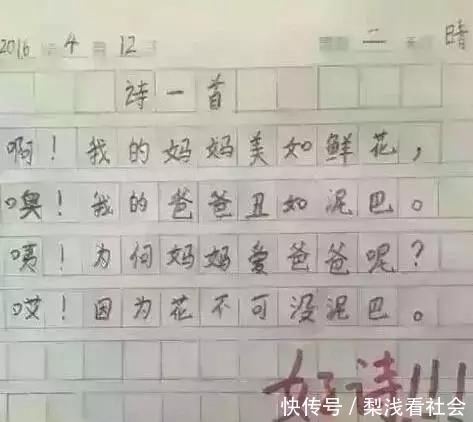 2016 4 12 二 晴
诗一首
啊！我的妈妈美如鲜花，
噢！我的爸爸丑如泥巴。
咦！为何妈妈爱爸爸呢？
哎！因为花不可没泥巴。
好诗!!!
快传号/梨浅看社会